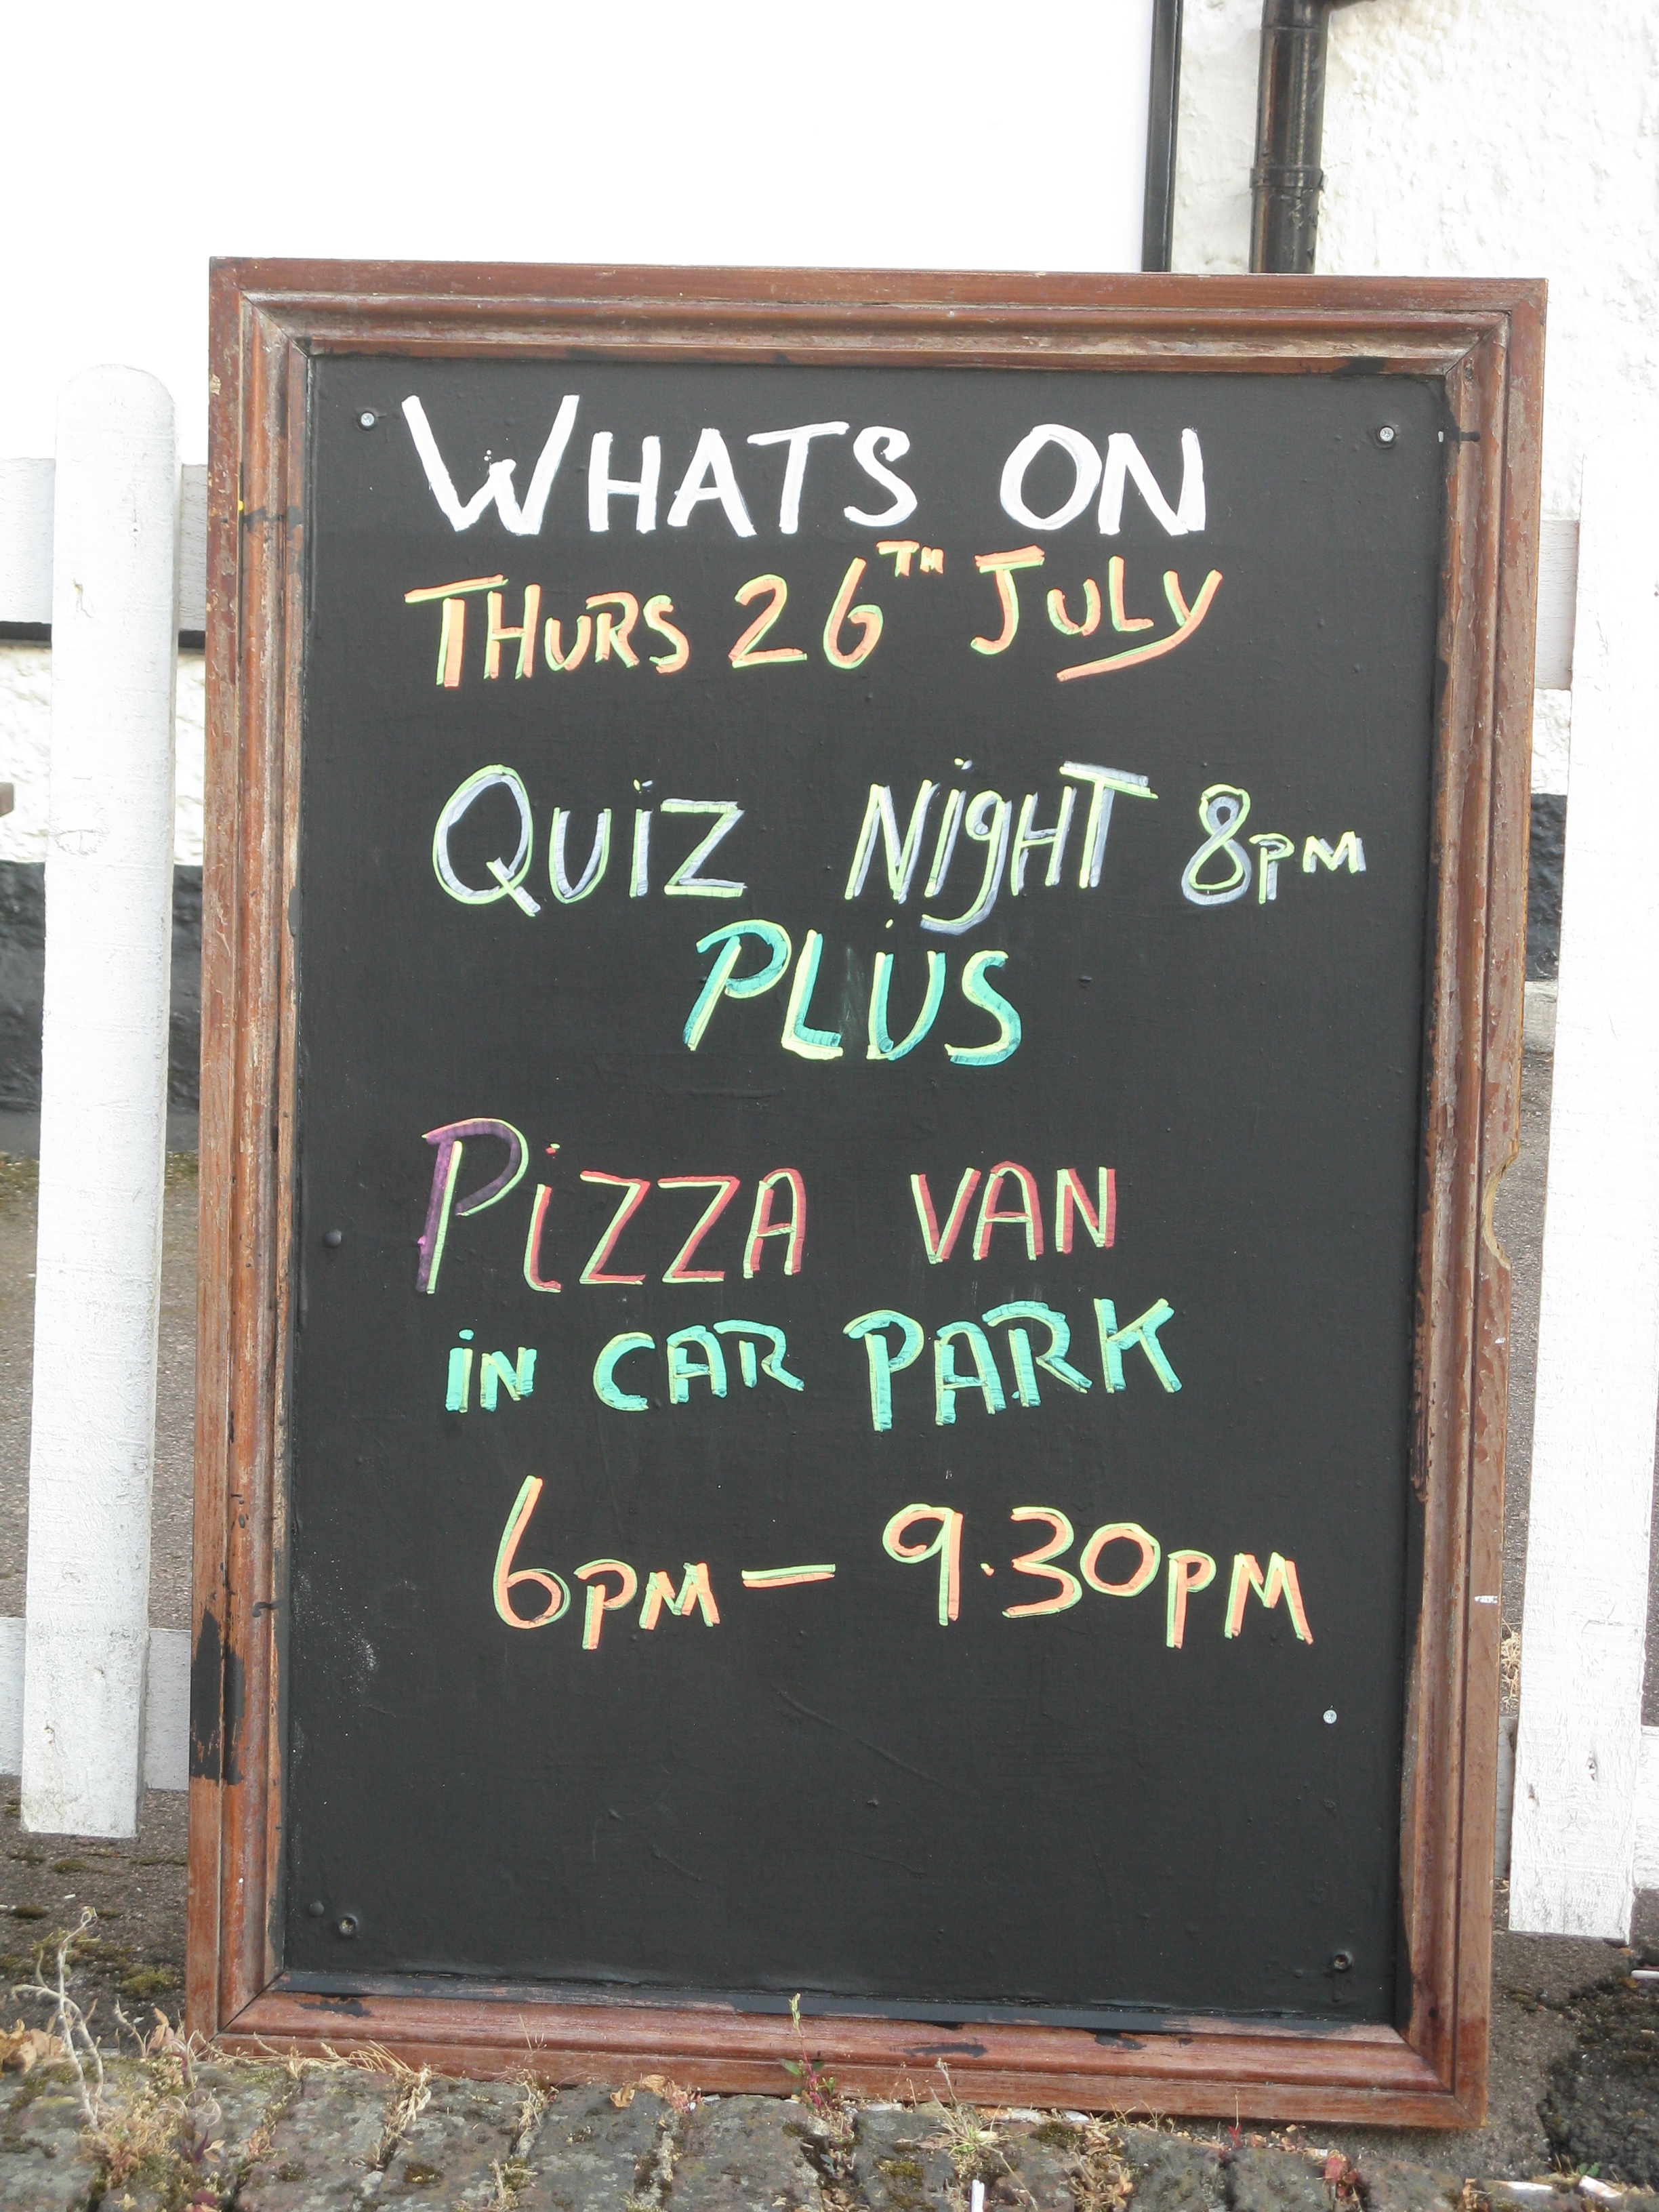 WHATS ON
THURS 26TH JULY
QUiZ NigHT 8PM
PLUS
PiZZA VAN
iN CAR PARK
6PM - 9.30PM